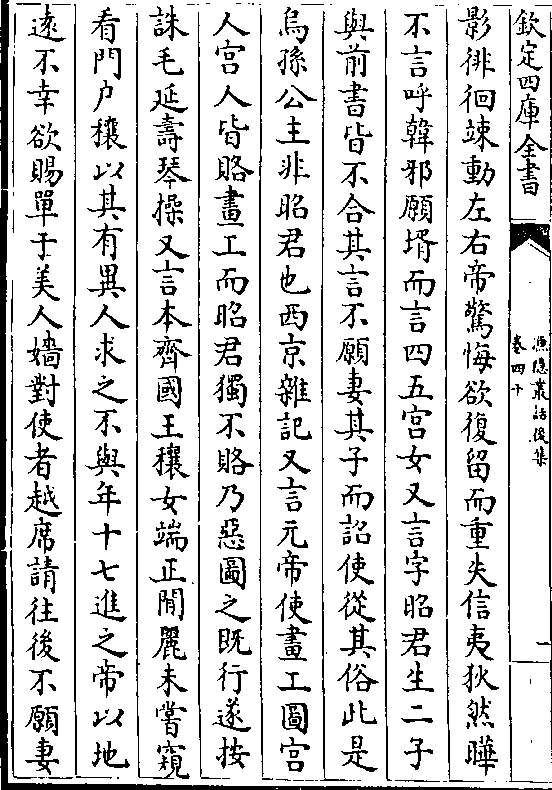 欽定四庫全書
漁隱叢話後集
卷四十
一
影徘徊竦動左右帝驚悔欲復留而重失信夷狄然曄
不言呼韓邪願壻而言四五宮女又言字昭君生二子
與前書皆不合其言不願妻其子而詔使從其俗此是
烏孫公主非昭君也西京雜記又言元帝使畫工圖宮
人宮人皆賂畫工而昭君獨不賂乃惡圖之既行遂按
誅毛延壽琴操又言本齊國王穰女端正閒麗未嘗窺
看門户穰以其有異人求之不與年十七進之帝以地
逺不幸欲賜單于美人嬙對使者越席請往後不願妻